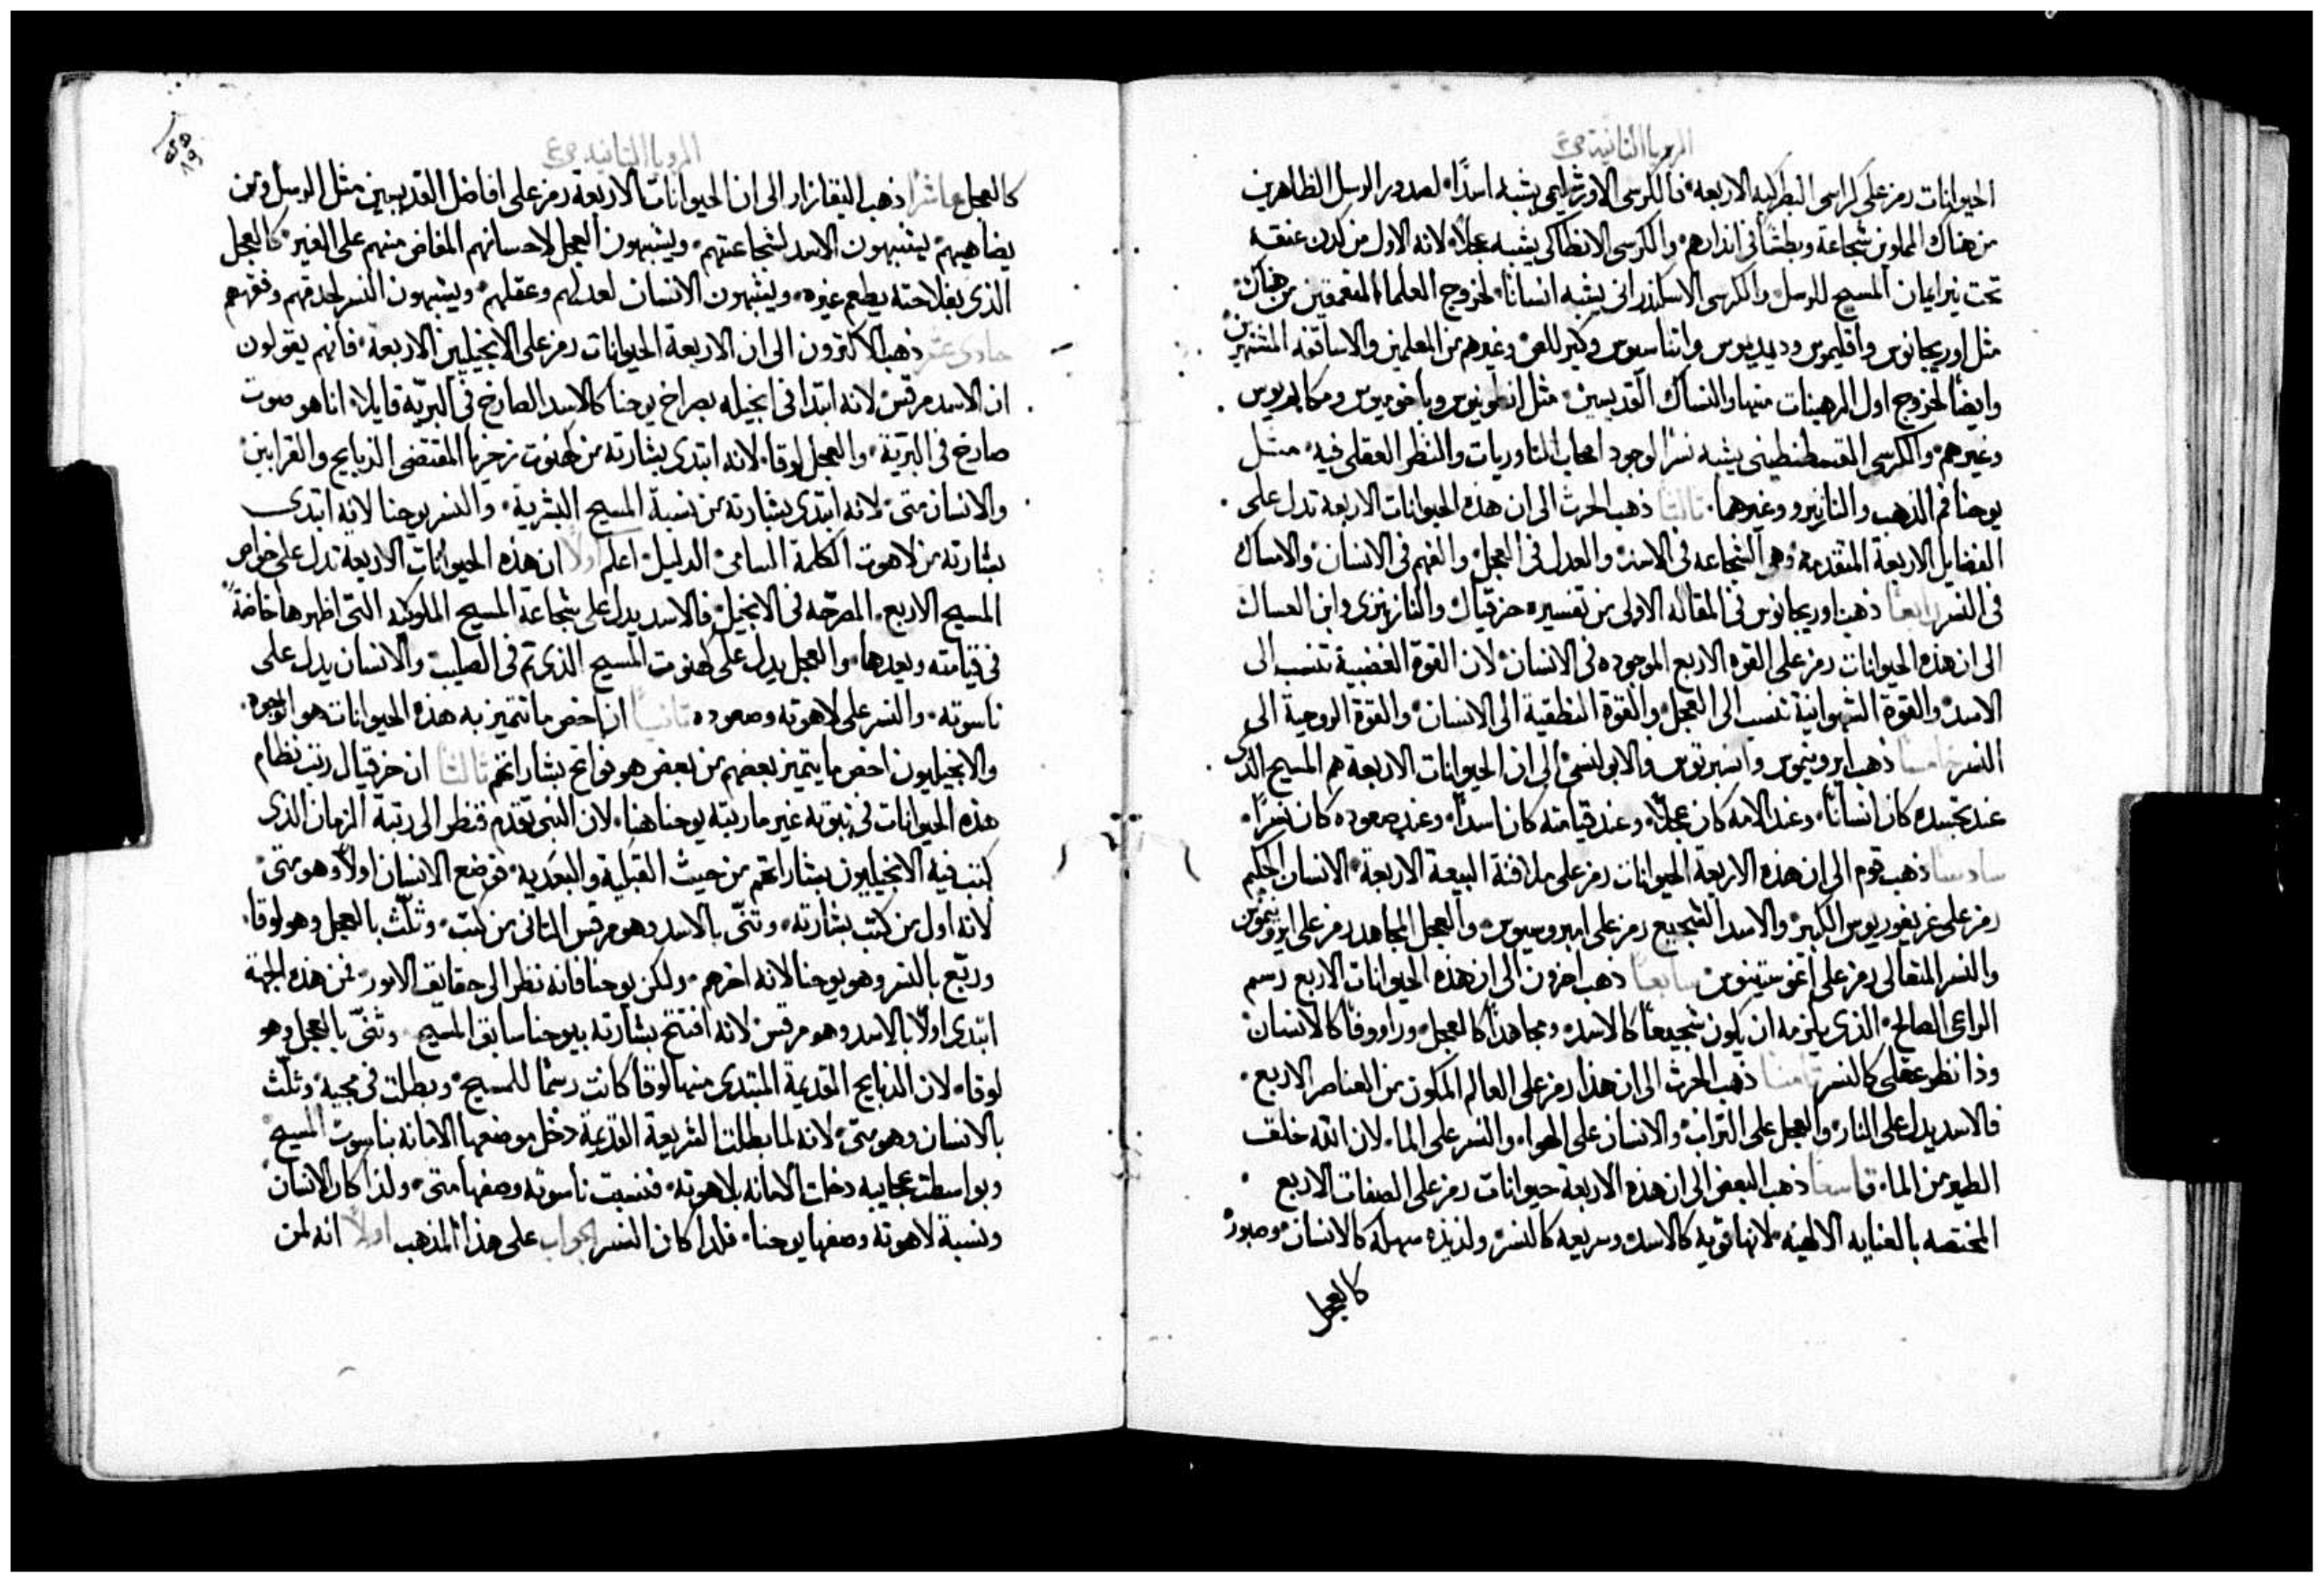 الرويا الثانية ص٤
الحيوانات رمز على كراسى البطركيه الاربعه فالكرسى الاورشليمى يشبه اسدًا لصدور الرسل الظاهرين
من هناك المملوين شجاعة وبطشًا فى انذارهم والكرسى الانطاكى يشبه عجلًا لانه الاول من كدن عنقه
تحت نير ايمان المسيح للرسل والكرسى الاسكندرانى يشبه انسانًا لخروج العلما المتعمقين من هناك
مثل اوريجانوس واقليموس وديديموس واتناسيوس وكيرللص وغيرهم من المعلمين والاساقفه المشتهرين
وايضًا لخروج اول الرهبنات منها والنساك القديسين مثل انطونيوس وباخوميوس ومكاريوس
وغيرهم والكرسى القسطنطينى يشبه نسرًا لوجود اصحاب التاوريات والنظر العقلى فيه مثل
يوحنا فم الذهب والنانزينزو وغيرهما ثالثًا ذهب الحرث الى ان هذه الحيوانات الاربعه تدل على
الفضايل الاربعة المتقدمه وهى الشجاعه فى الاسد والعدل فى العجل والفهم فى الانسان والامساك
فى النسر رابعًا ذهب اوريجانوس فى المقاله الاولى من تفسيره حزقيال والنازينزى وابن العسال
الى ان هذه الحيوانات رمز على القوه الاربع الموجوده فى الانسان لان القوة الغضبية تنسب الى
الاسد والقوة الشهوانية تنسب الى العجل والقوة النطقية الى الانسان والقوة الروحية الى
النسر خامسًا ذهب ايرونيموس وانسبرتوس والابولنسى الى ان الحيوانات الاربعة هم المسيح الذى
عند تجسده كان انسانًا وعند الامه كان عجلًا وعند قيامته كان اسدًا وعند صعوده كان نسرًا
سادسًا ذهب قوم الى ان هذه الاربعة الحيوانات رمز على ملافنة البيعة الاربعة الانسان الحكيم
رمز على غريغوريوس الكبير والاسد الشجيع رمز على امبروسيوس والعجل المجاهد رمز على ايرونيموس
والنسر المتعالى رمز على اغوستينوس سابعًا ذهب اخرون الى ان هذه الحيوانات الاربع رسم
الراعى الصالح الذى يلزمه ان يكون شجيعًا كالاسد ومجاهدًا كالعجل وراووفًا كالانسان
وذا نظر عقلى كالنسر ثامنًا ذهب الحرث الى ان هذا رمز على العالم المكون من العناصر الاربع
فالاسد يدل على النار والعجل على التراب والانسان على الهوا والنسر على الما لان الله خلق
الطيور من الما تاسعًا ذهب البعض الى ان هذه الاربعة حيوانات رمز على الصفات الاربع
المختصه بالعنايه الالهيه لانها قويه كالاسد وسريعه كالنسر ولذيذه سهله كالانسان وصبور
كالعجل
الرويا الثانيه ص٤
كالعجل عاشرًا ذهب اليقازار الى ان الحيوانات الاربعة رمز على افاضل القديسين مثل الرسل ومن
يضاهيهم يشبهون الاسد لشجاعتهم ويشبهون العجل لاحسانهم المفاض منهم على الغير كالعجل
الذى بفلاحته يطعم غيره ويشبهون الانسان لعدلهم وعقلهم ويشبهون النسر لحدقهم وفهمهم
حادى عشر ذهب الاكثرون الى ان الاربعة الحيوانات رمز على الانجيليين الاربعة فانهم يقولون
ان الاسد مرقس لانه ابتدا فى انجيله بصراخ يوحنا كالاسد الصارخ فى البرية قايلا انا هو صوت
صارخ فى البرية والعجل لوقا لانه ابتدى بشارته من كهنوت زخريا المقتضى الذبايح والقرابين
والانسان متى لانه ابتدى بشارته من نسبة المسيح البشرية والنسر يوحنا لانه ابتدى
بشارته من لاهوت الكلمة السامى الدليل اعلم اولًا ان هذه الحيوانات الاربعة تدل على خواص
المسيح الاربع المصرحه فى الانجيل فالاسد يدل على شجاعة المسيح الملوكيه التى اظهرها خاصةً
فى قيامته وبعدها والعجل يدل على كهنوت المسيح الذى تم فى الصليب والانسان يدل على
ناسوته والنسر على لاهوته وصعوده ثانيًا ان اخص ما تتميز به هذه الحيوانات هو الوجوه
والانجيليون اخص ما يتميز بعضهم من بعض هو فواتح بشاراتهم ثالثًا ان حزقيال رتب نظام
هذه الحيوانات فى نبوته غير ما رتبه يوحنا هنا لان النبى تقدم فنظر الى رتبة الزمان الذى
كتب فيه الانجيليون بشاراتهم من حيث القبلية والبعدية فوضع الانسان اولًا وهو متى
لانه اول من كتب بشارته وثنى بالاسد وهو مرقس الثانى من كتب وثلث بالعجل وهو لوقا
وربع بالنسر وهو يوحنا لانه اخرهم ولكن يوحنا فانه نظر الى حقايق الامور فمن هذه الجهة
ابتدى اولًا بالاسد وهو مرقس لانه افتتح بشارته بيوحنا سابق المسيح وثنى بالعجل وهو
لوقا لان الذبايح القديمة المبتدى منها لوقا كانت رسمًا للمسيح وبطلت فى مجيه وثلث
بالانسان وهو متى لانه لما بطلت الشريعة القديمة دخل موضعها الامانه بناسوت المسيح
وبواسطت عجايبه دخلت الامانه بلاهوته فنسبت ناسوته وصفها متى ولذا كان الانسان
ونسبة لاهوته وصفها يوحنا فلذا كان النسر الجواب على هذا المذهب اولًا انه لمن